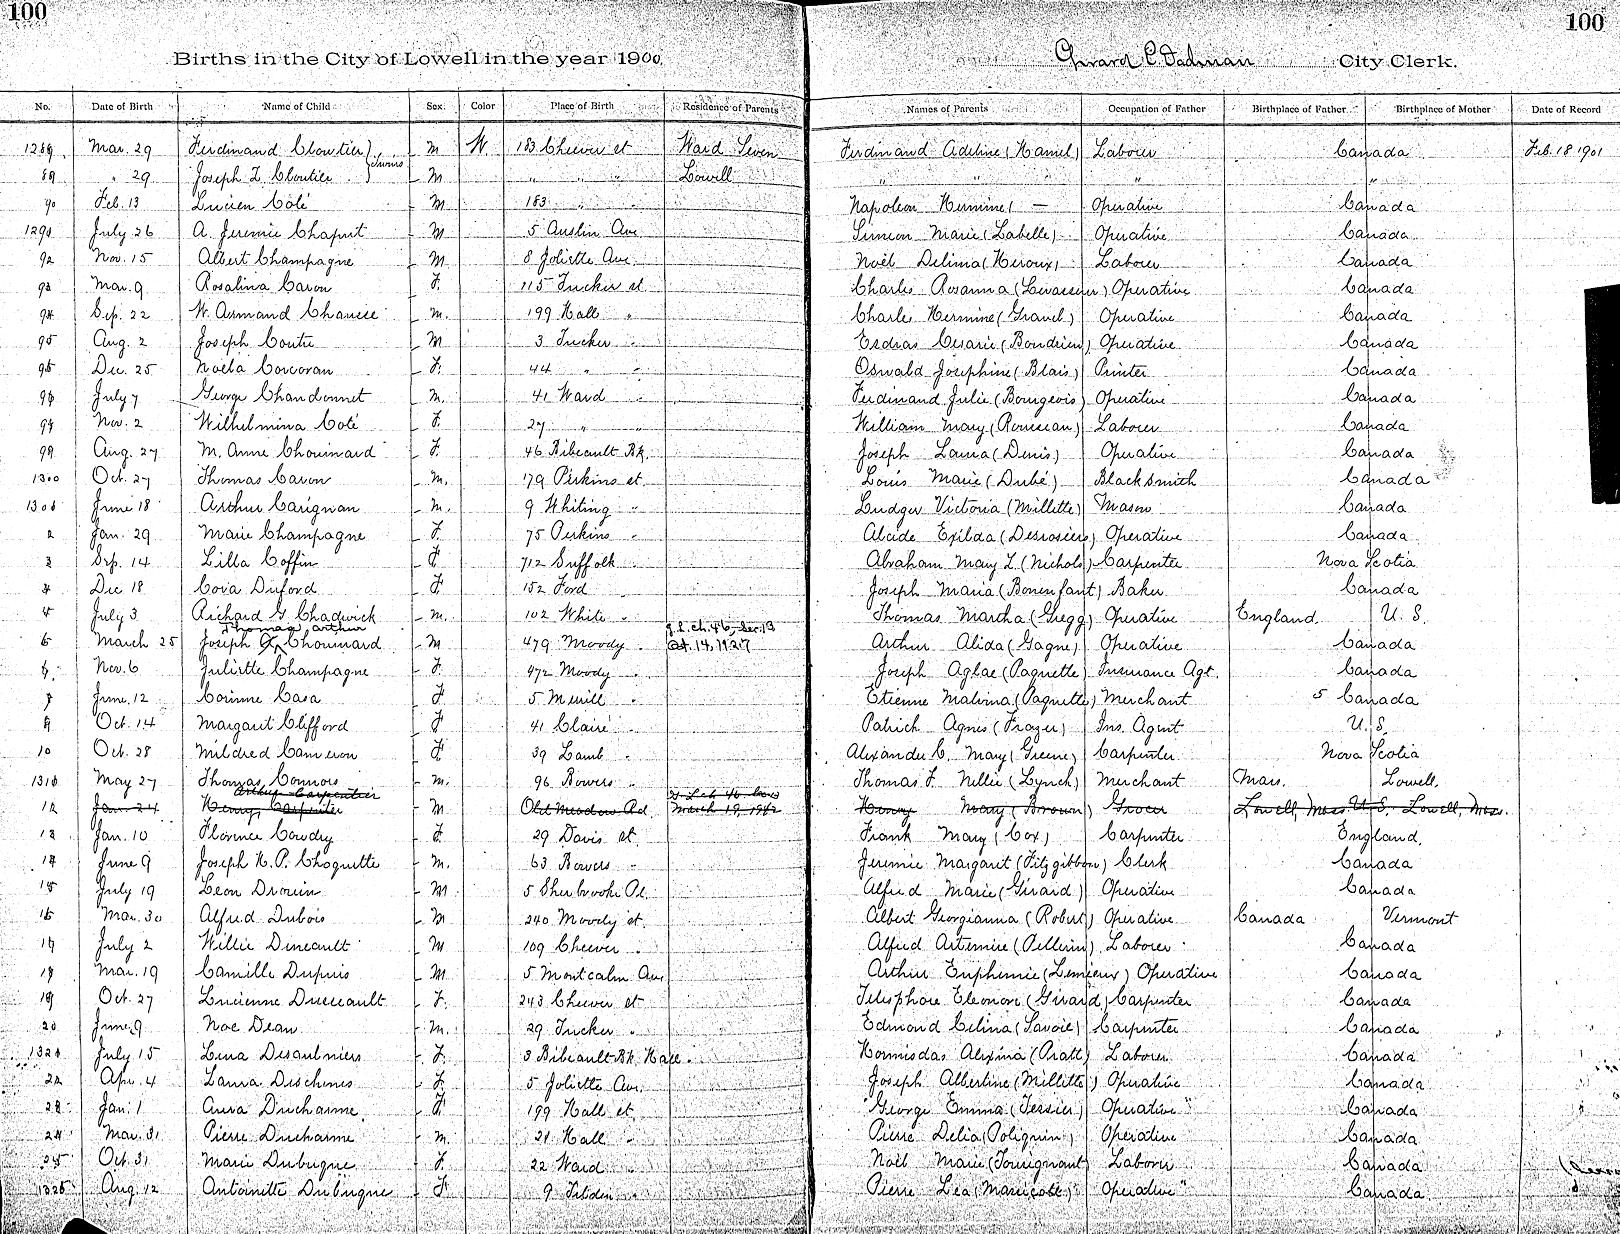 100
100
Births in the City of Lowell in the year 1900.
Girard P. Dadman City Clerk.
No. Date of Birth Name of Child Sex. Color Place of Birth Residence of Parents Names of Parents Occupation of Father Birthplace of Father Birthplace of Mother Date of Record
Mar. 29 Ferdinand Cloutier } twins M W. 183 Cheever st Ward Seven Ferdinand Adeline (Hamel) Laborer Canada Feb. 18 1901
89 " 29 Joseph Z. Cloutier M " " " Lowell " " " " "
90 Feb. 13 Lucien Coté M 183 " " Napoleon Hermine ( — Operative Canada
1291 July 26 A. Jeremie Chaput M 5 Austin Ave Simeon Marie (Labelle) Operative Canada
92 Nov. 15 Albert Champagne M 8 Joliette Ave. Noël Delima (Heroux) Laborer Canada
93 Mar. 9 Rosalina Caron F. 115 Tucker st. Charles Rosanna (Levasseur) Operative Canada
94 Sep. 22 W. Armand Chausse M. 199 Hall " Charles Hermine (Gravel) Operative Canada
95 Aug. 2 Joseph Coutu M 3 Tucker " Esdras Cesarie (Boudrien) Operative Canada
96 Dec. 25 Noëla Corcoran F. 44 " " Oswald Josephine (Blais) Printer Canada
July 7 George Chandonnet M. 41 Ward " Ferdinand Julie (Bourgeois) Operative Canada
Nov. 2 Wilhelmina Coté F. 27 " " William Mary (Rousseau) Laborer Canada
99 Aug. 27 M. Anne Chouinard F. 46 Bibeault Bk. Joseph Laura (Denis) Operative Canada
1300 Oct. 27 Thomas Caron M. 179 Perkins st. Louis Marie (Dubé) Blacksmith Canada
1301 June 18 Arthur Carignan M. 9 Whiting " Ludger Victoria (Millette) Mason Canada
2 Jan. 29 Marie Champagne F. 75 Perkins " Alcide Exilda (Desrosiers) Operative Canada
3 Sep. 14 Lilla Coffin F 712 Suffolk " Abraham Mary L (Nichols) Carpenter Nova Scotia
4 Dec 18 Cora Duford F. 152 Ford Joseph Maria (Bonenfant) Baker Canada
July 3 Richard G Chadwick M. 102 White " Thomas Martha (Gregg) Operative England. U. S.
Thomas Arthur G.L. ch. 46, Sec. 13
6 March 25 Joseph Chouinard M 479 Moody " Oct. 14, 1927 Arthur Alida (Gagne) Operative Canada
Nov. 6 Juliette Champagne F. 472 Moody " Joseph Aglae (Paquette) Insurance Agt. Canada
June 12 Corinne Casa F 5 Merrill " Etienne Malvina (Paquette) Merchant 5 Canada
9 Oct. 14 Margaret Clifford F 41 Claire " Patrick Agnes (Frazer) Ins. Agent U. S.
10 Oct. 28 Mildred Cameron F. 39 Lamb " Alexander C. May (Greene) Carpenter Nova Scotia
May 27 Thomas Connors M. 96 Bowers " Thomas F. Nellie (Lynch) Merchant Mass. Lowell.
Arthur Carpentier
12 Jan. 24 Henry Carpentier M Old Meadow Rd. March 19, 1942 Henry Mary (Brown) Grocer Lowell, Mass. U. S. Lowell, Mass.
13 Jan. 10 Florence Cowdry F. 29 Davis st. Frank Mary (Cox) Carpenter England.
14 June 9 Joseph H. P. Choquette M. 63 Bowers " Jeremie Margaret (Fitzgibbon) Clerk Canada
15 July 19 Leon Drouin M 5 Sherbrooke Pl. Alfred Marie (Girard) Operative Canada
16 Mar. 30 Alfred Dubois M 240 Moody st. Albert Georgianna (Robert) Operative Canada Vermont
17 July 2 Willie Dineault M 109 Cheever " Alfred Artemise (Pellerin) Laborer Canada
18 Mar. 19 Camille Dupuis M. 5 Montcalm Ave. Arthur Euphemie (Lemieux) Operative Canada
19 Oct. 27 Lucienne Dusseault F. 243 Cheever st Telesphore Eleonore (Girard) Carpenter Canada
20 June 9 Noe Dean M. 29 Tucker " Edmond Celina (Savoie) Carpenter Canada
1321 July 15 Lena Desaulniers F. 3 Bibeault Bk. Hall. Hormisdas Alexina (Pratt) Laborer Canada
22 Apr. 4 Laura Deschenes F. 5 Joliette Ave. Joseph Albertine (Millette) Operative Canada
23 Jan. 1 Aura Ducharme F 199 Hall st George Emma (Tessier) Operative " Canada
24 Mar. 31 Pierre Ducharme M. 21 Hall " Pierre Delia (Poliquin) Operative Canada
25 Oct. 31 Marie Dubuque F. 22 Ward " Noël Marie (Tourignant) Laborer Canada
1326 Aug. 12 Antoinette Dubuque F 9 Tilden " Pierre Lea (Marcicott) Operative " Canada.